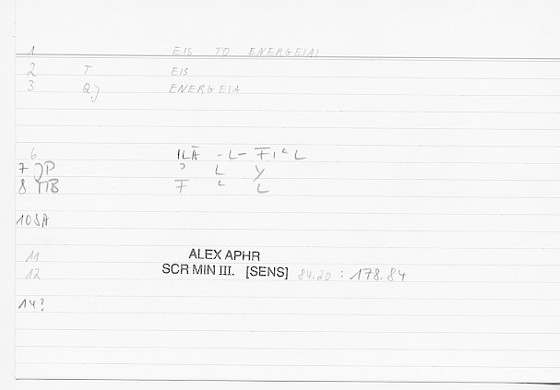 1 EIS TO ENERGEIAI
2 T EIS
3 Qj ENERGEIA
6 ILĀ
7 JP L y
8 MB F L L
10 SA
11 ALEX APHR
12 SCR MIN III. [SENS] 84.20 : 178.84
14?